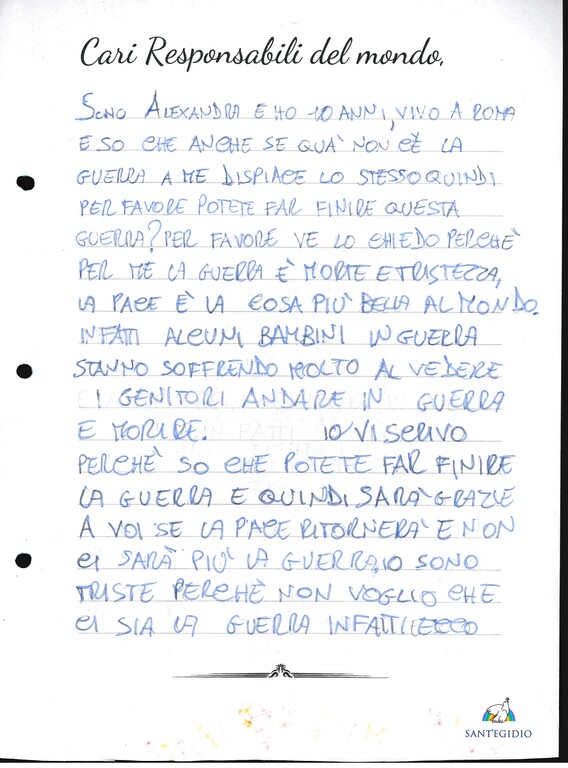 Cari Responsabili del mondo,
SONO ALEXANDRA E HO 10 ANNI, VIVO A ROMA
E SO CHE ANCHE SE QUA' NON C'È LA
GUERRA A ME DISPIACE LO STESSO QUINDI
PER FAVORE POTETE FAR FINIRE QUESTA
GUERRA? PER FAVORE VE LO CHIEDO PERCHE'
PER ME LA GUERRA È MORTE E TRISTEZZA,
LA PACE È LA COSA PIU' BELLA AL MONDO.
INFATI ALCUNI BAMBINI IN GUERRA
STANNO SOFFRENDO MOLTO AL VEDERE
I GENITORI ANDARE IN GUERRA
E MORIRE. IO VI SCRIVO
PERCHE' SO CHE POTETE FAR FINIRE
LA GUERRA E QUINDI SARA' GRAZIE
A VOI SE LA PACE RITORNERA' E NON
CI SARA' PIU' LA GUERRA, IO SONO
TRISTE PERCHÈ NON VOGLIO CHE
CI SIA LA GUERRA INFATTI
SANT'EGIDIO